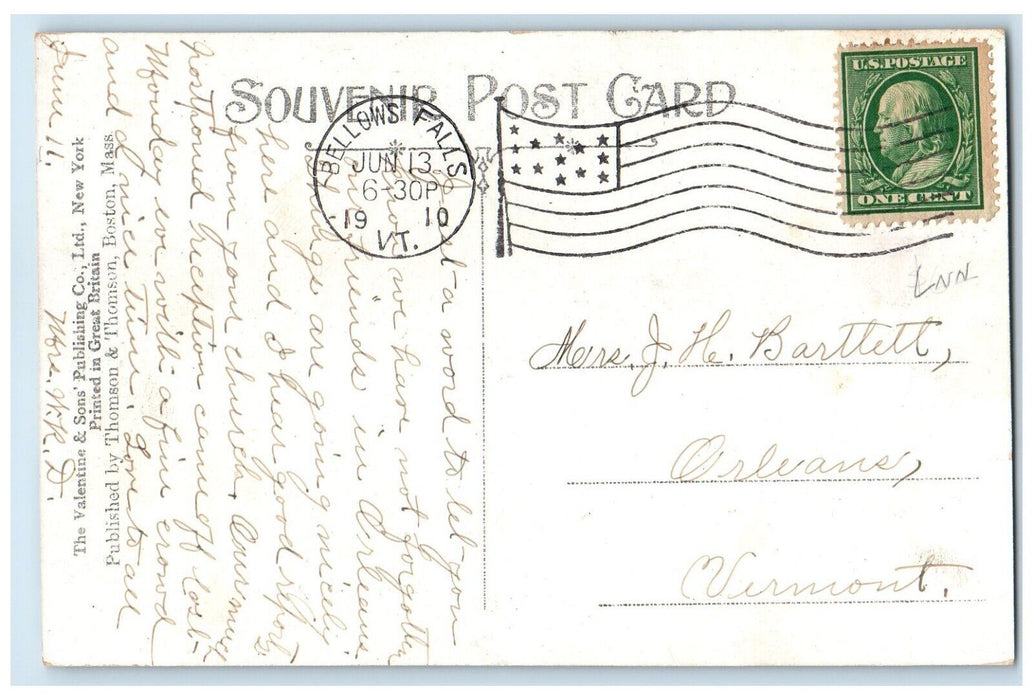 SOUVENIR POST CARD
BELLOWS FALLS
JUN 13
6-30P
1910
VT.
U.S. POSTAGE
ONE CENT
LNN
Mrs. J. H. Bartlett,
Orleans,
Vermont.
Just a word to let you
know we have not forgotten
our friends in Orleans.
Things are going nicely
here and I hear good reports
from your church. Our much
postponed reception came off last
Monday eve with a fine crowd
and a nice time. Love to all
June 11, Mrs. W. R. D.
The Valentine & Sons' Publishing Co., Ltd., New York
Printed in Great Britain
Published by Thomson & Thomson, Boston, Mass.